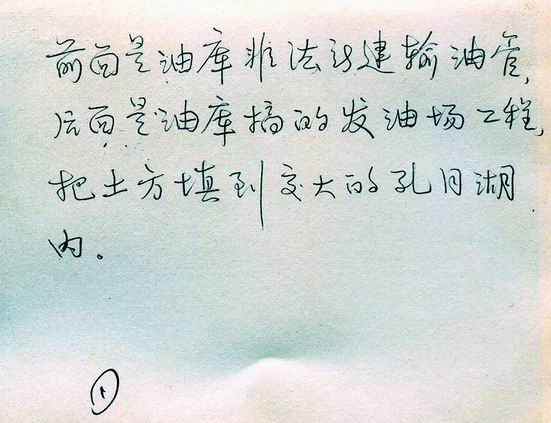 前面是油库非法新建输油管,
后面是油库搞的发油场工程,
把土方填到交大的孔目湖
内。
①